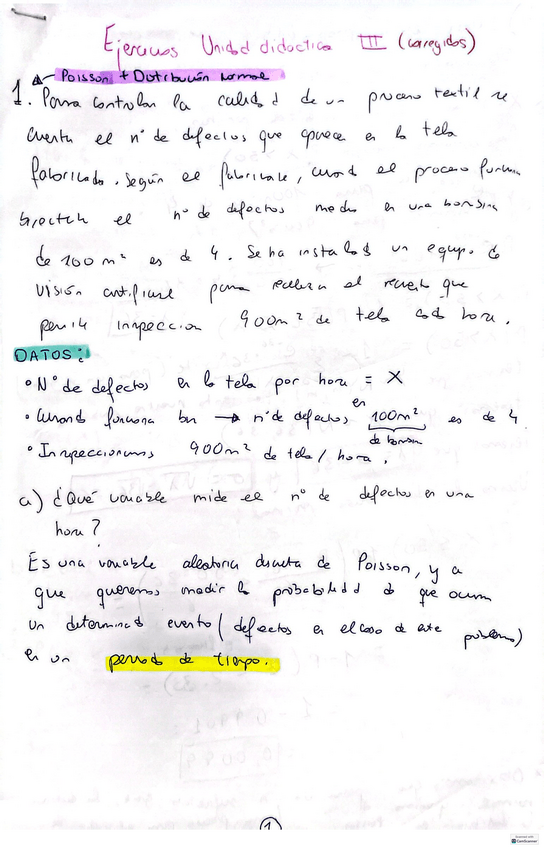 Ejercicios Unidad didactica III (corregidos)
Poisson + Distribución normal
1. Para controlar la calidad de un proceso textil se
cuenta el nº de defectos que aparece en la tela
fabricada. Según el fabricante, cuando el proceso funciona
el nº de defectos medio en una bobina
de 100 m² es de 4. Se ha instalado un equipo de
visión artificial para realizar el recuento que
permite inspección 900 m² de tela cada hora.
DATOS:
• Nº de defectos en la tela por hora = X
• Cuando funciona bn → nº de defectos en 100m² es de 4
de bobina
• Inspeccionamos 900m² de tela/hora.
a) ¿Qué variable mide el nº de defectos en una
hora?
Es una variable aleatoria discreta de Poisson, ya
que queremos medir la probabilidad de que ocurra
un determinado evento (defectos en el caso de este problema)
en un periodo de tiempo.
1
CamScanner